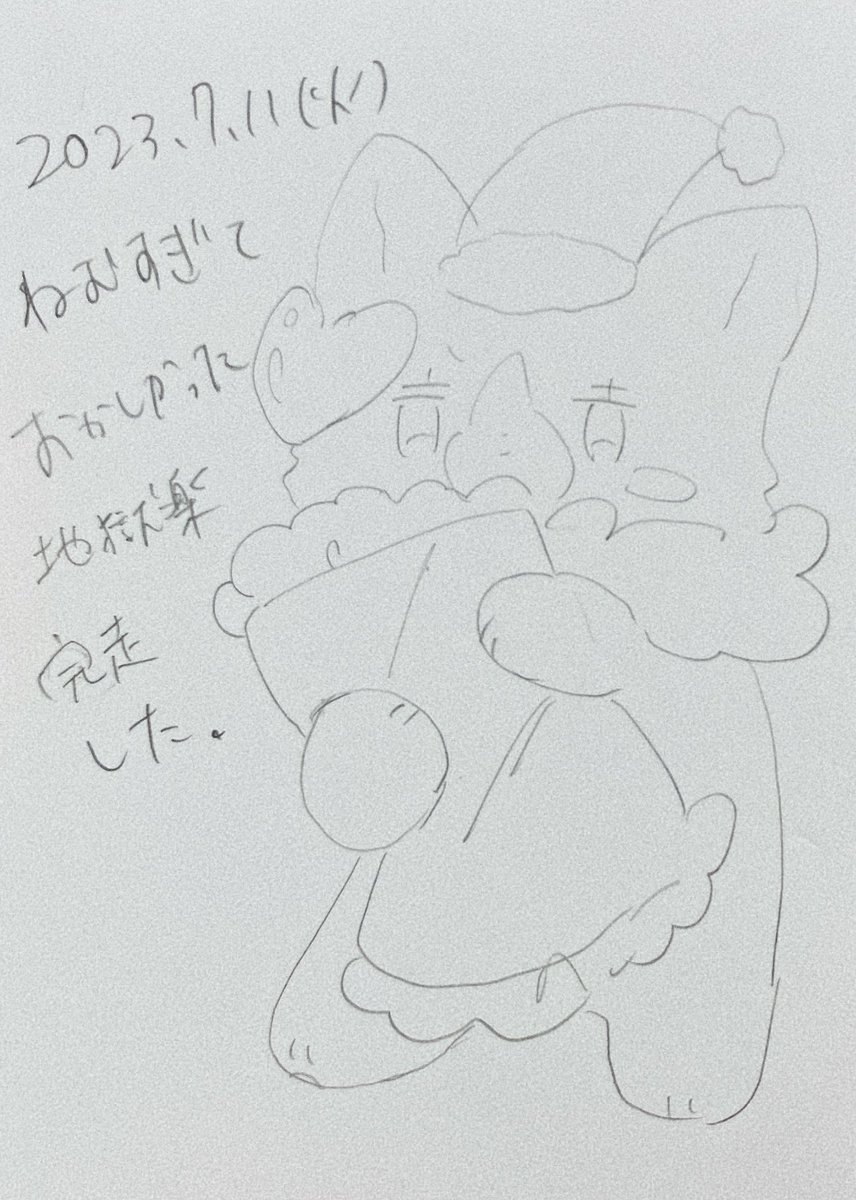 2023.7.11(火)
ねむすぎて
おかしかった
地獄楽
完走
した。